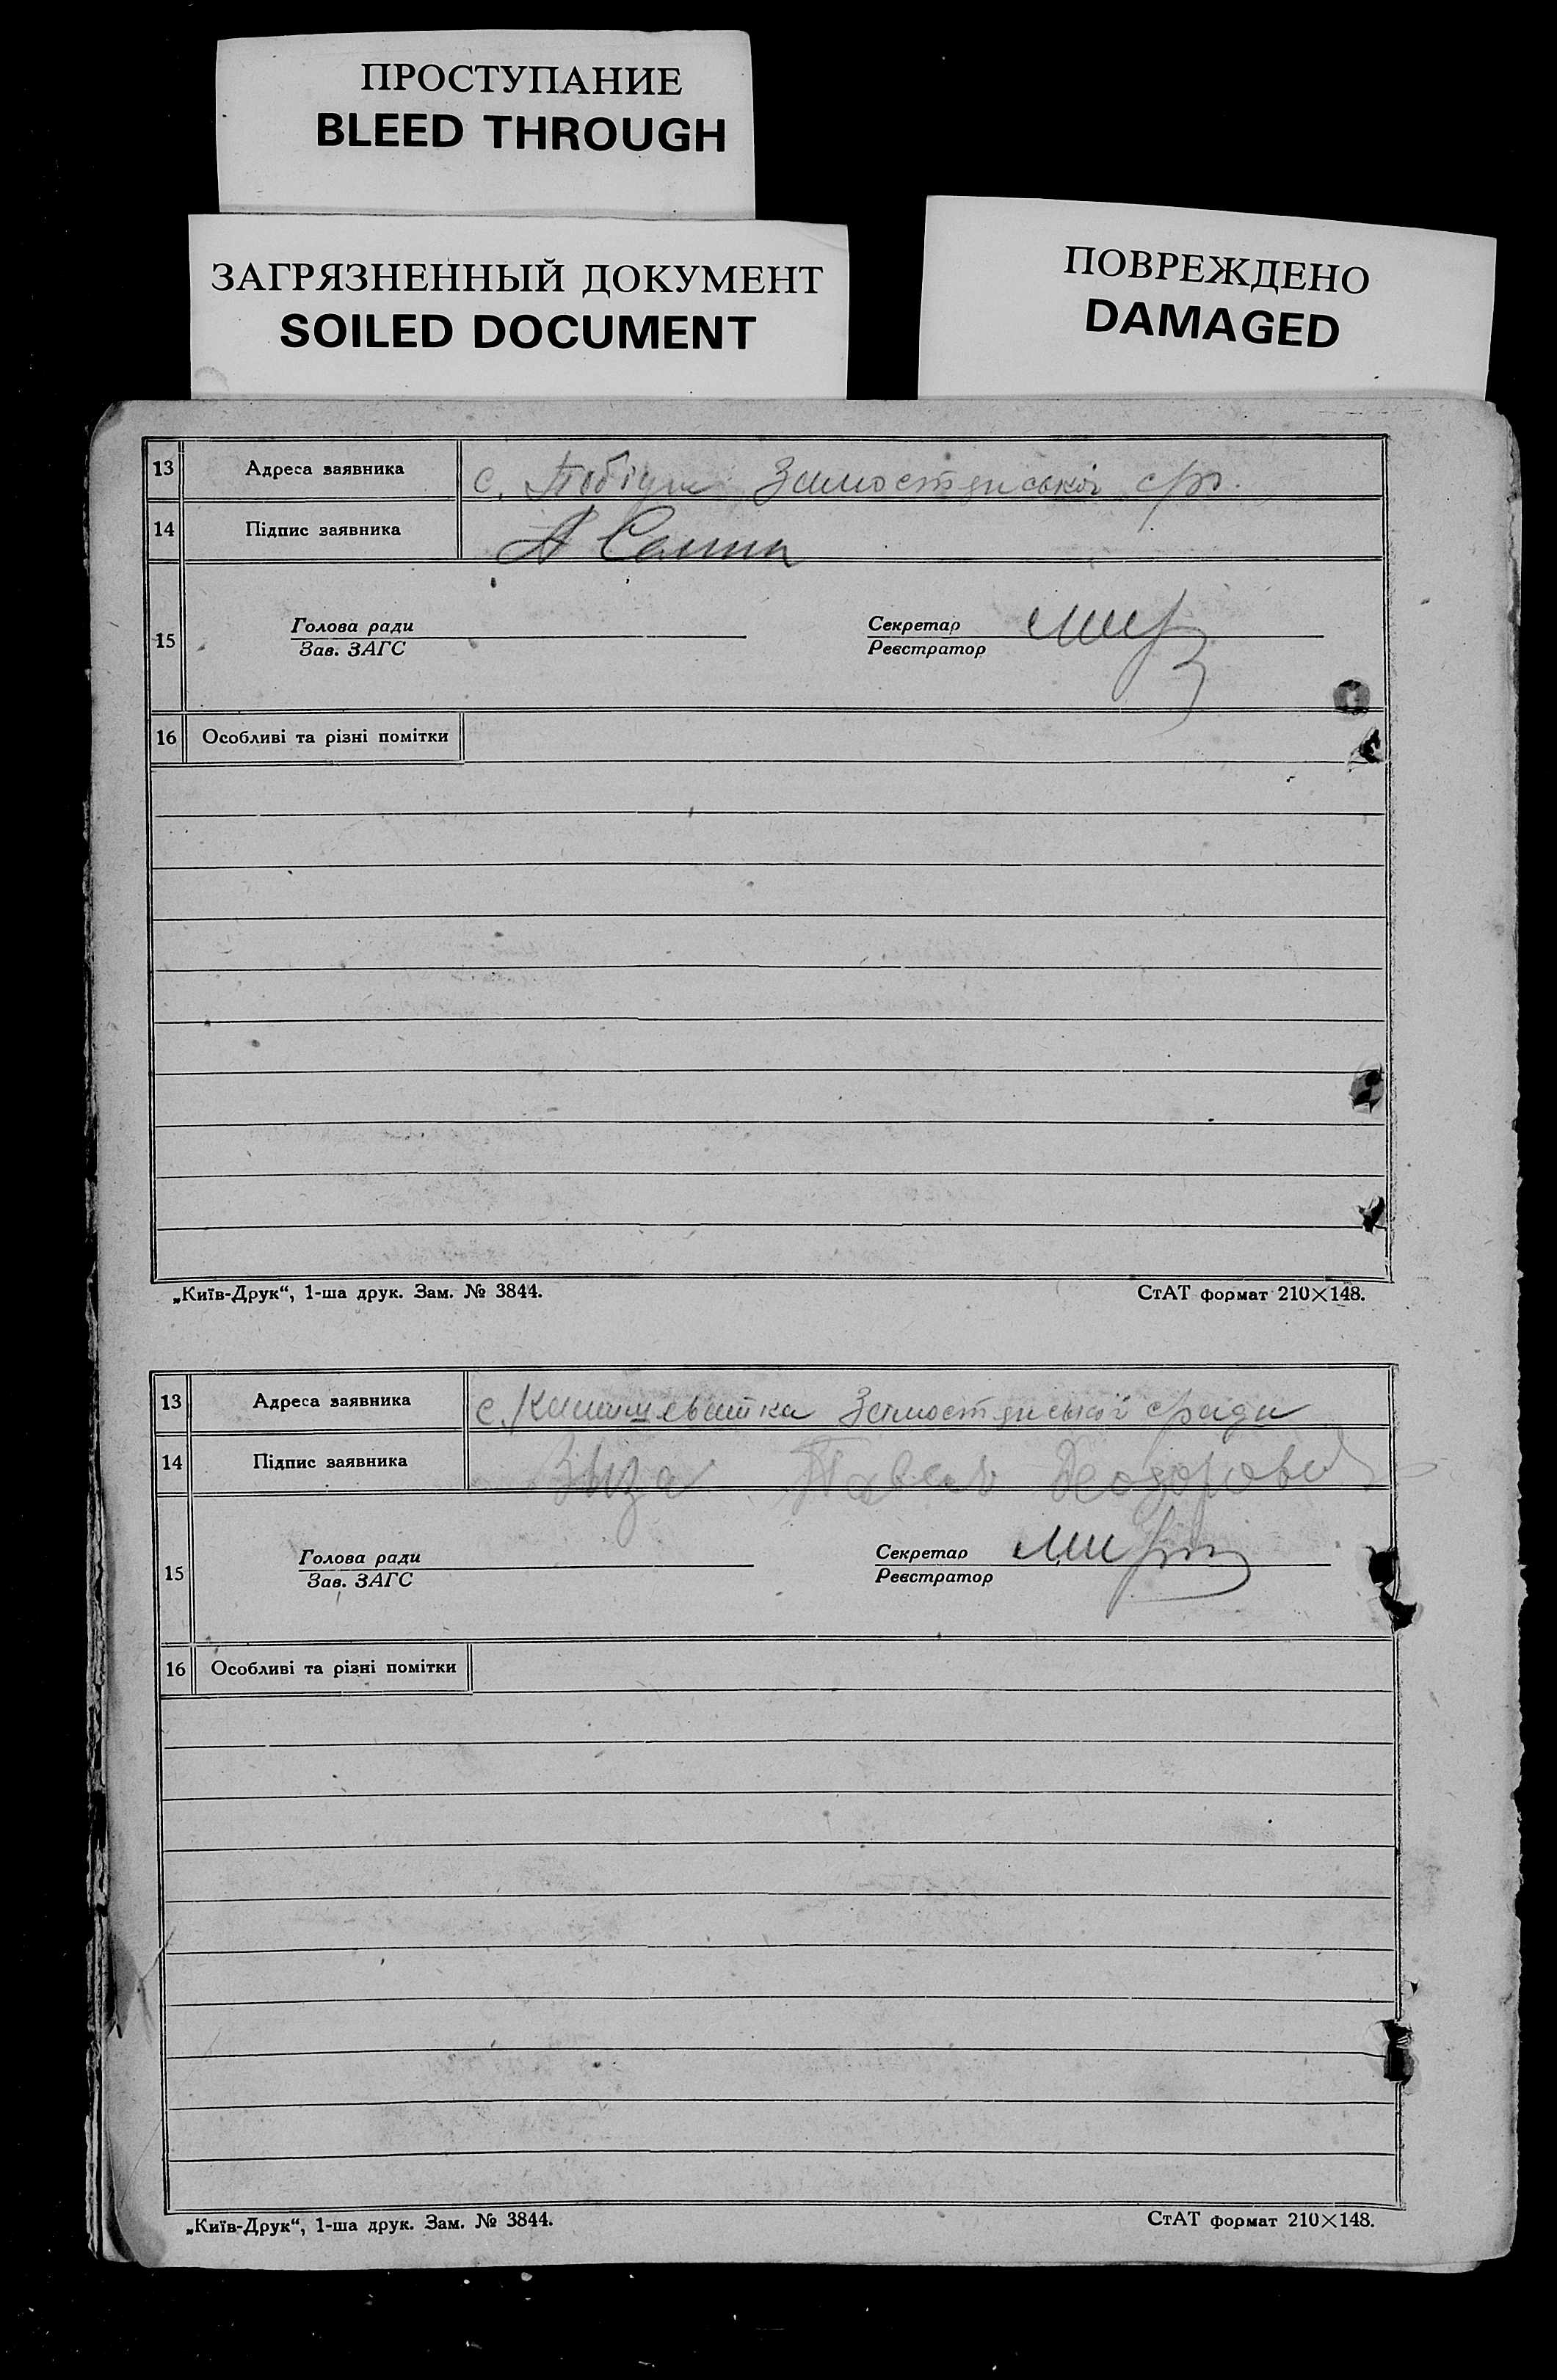 ПРОСТУПАНИЕ
BLEED THROUGH
ЗАГРЯЗНЕННЫЙ ДОКУМЕНТ
SOILED DOCUMENT
ПОВРЕЖДЕНО
DAMAGED
13 Адреса заявника с. ср.
14 Підпис заявника А
15 Голова ради Секретар
Зав. ЗАГС Реєстратор
16 Особливі та різні помітки
„Київ-Друк“, 1-ша друк. Зам. № 3844. СтАТ формат 210×148.
13 Адреса заявника с. с/ради
14 Підпис заявника Павел
15 Голова ради Секретар
Зав. ЗАГС Реєстратор
16 Особливі та різні помітки
„Київ-Друк“, 1-ша друк. Зам. № 3844. СтАТ формат 210×148.